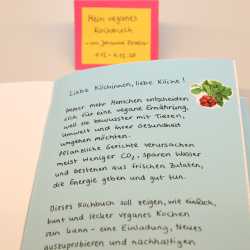 Mein veganes
Kochbuch
von Johanna
Liebe Köchinnen, liebe Köche!
Immer mehr Menschen entscheiden
sich für eine vegane Ernährung,
weil sie bewusster mit Tieren,
Umwelt und ihrer Gesundheit
umgehen möchten.
Pflanzliche Gerichte verursachen
meist weniger CO₂, sparen Wasser
und bestehen aus frischen Zutaten,
die Energie geben und gut tun.
Dieses Kochbuch soll zeigen, wie einfach,
bunt und lecker veganes Kochen
sein kann – eine Einladung, Neues
auszuprobieren und nachhaltigen